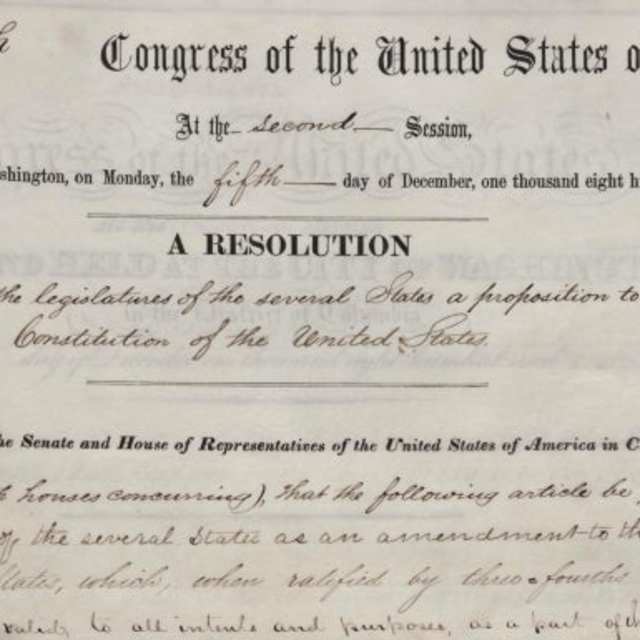 h Congress of the United States o
At the second Session,
shington, on Monday, the fifth day of December, one thousand eight h
A RESOLUTION
the legislatures of the several States a proposition to
Constitution of the United States.
he Senate and House of Representatives of the United States of America in C
houses concurring), that the following article be
the several States as an amendment to th
States, which, when ratified by three-fourths
valid, to all intents and purposes, as a part of th